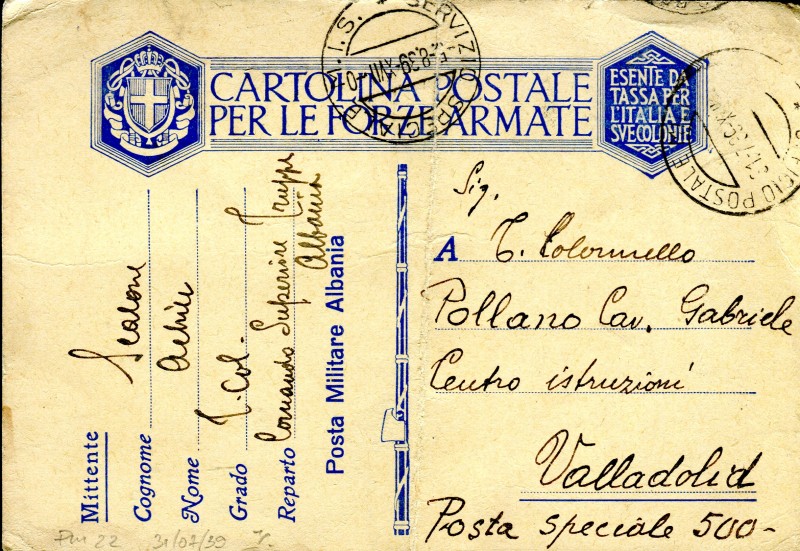 CARTOLINA POSTALE
PER LE FORZE ARMATE
ESENTE DA
TASSA PER
L'ITALIA E
SVE COLONIE
SERVIZIO SPECIALE M.I.S.
-2.8.39-XVII
UFFICIO POSTALE
Mittente
Cognome Scalone
Nome Achille
Grado T. Col.
Reparto Comando Superiore Truppe
Albania
Posta Militare Albania
Sig.
A T. Colonnello
Pollano Cav. Gabriele
Centro istruzioni
Valladolid
Posta speciale 500-
Pm 22 31/07/39